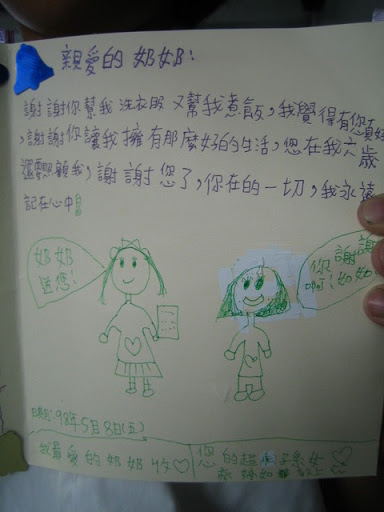 親愛的 奶奶:
謝謝你幫我 洗衣服 又幫我煮飯,我覺得有您真好
,謝謝你讓我擁有那麼好的生活,您在我六歲
還要照顧我,謝謝 您了,你在的一切,我永遠
記在心中
奶奶
送您!
謝謝
你 如如
啊!
日期:98年5月8日(五)
我最愛的奶奶收♡
您的超